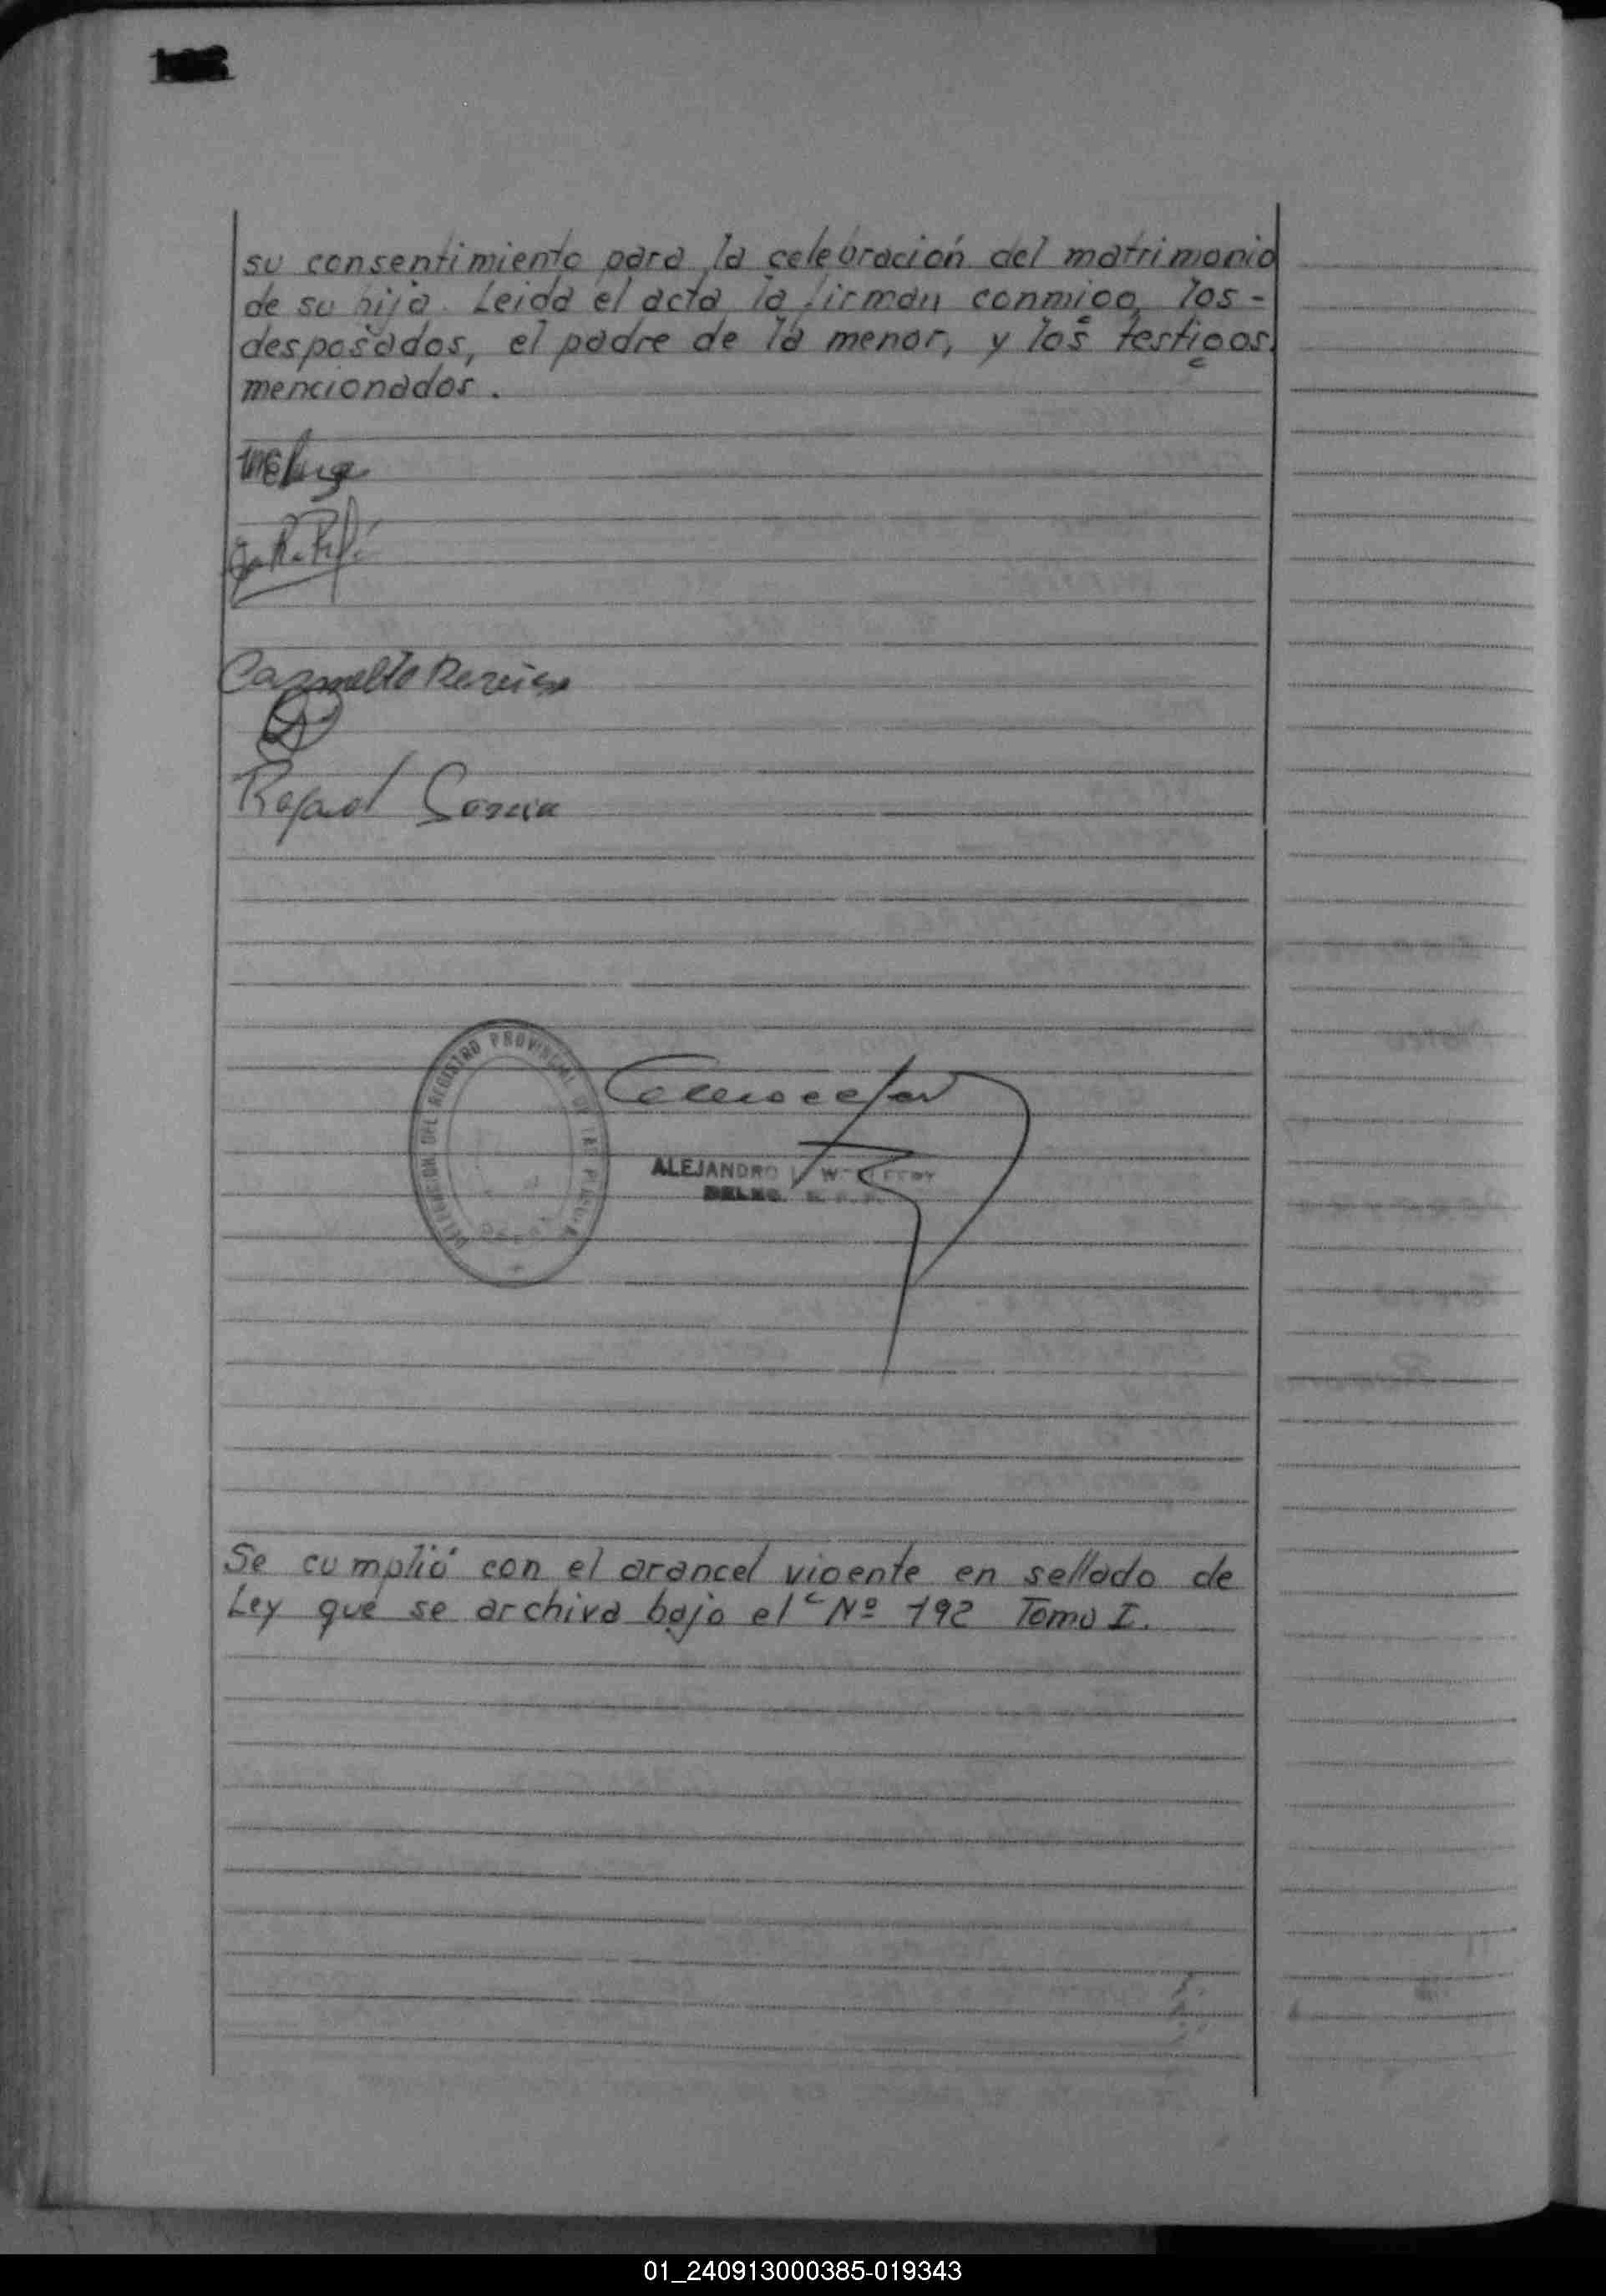 su consentimiento para la celebración del matrimonio
de su hija. Leida el acta la firman conmigo, los -
desposados, el padre de la menor, y los testigos
mencionados.
Rafael Garcia
DELEGACION DEL REGISTRO PROVINCIAL DE LAS PERSONAS
ALEJANDRO
DELEG. R. P. P.
Se cumplió con el arancel vigente en sellado de
Ley que se archiva bajo el Nº 192 Tomo I.
01_240913000385-019343